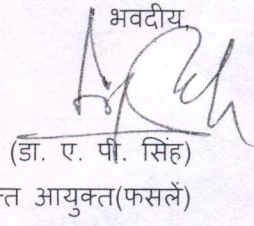 भवदीय,
(डा. ए. पी. सिंह)
आयुक्त(फसलें)